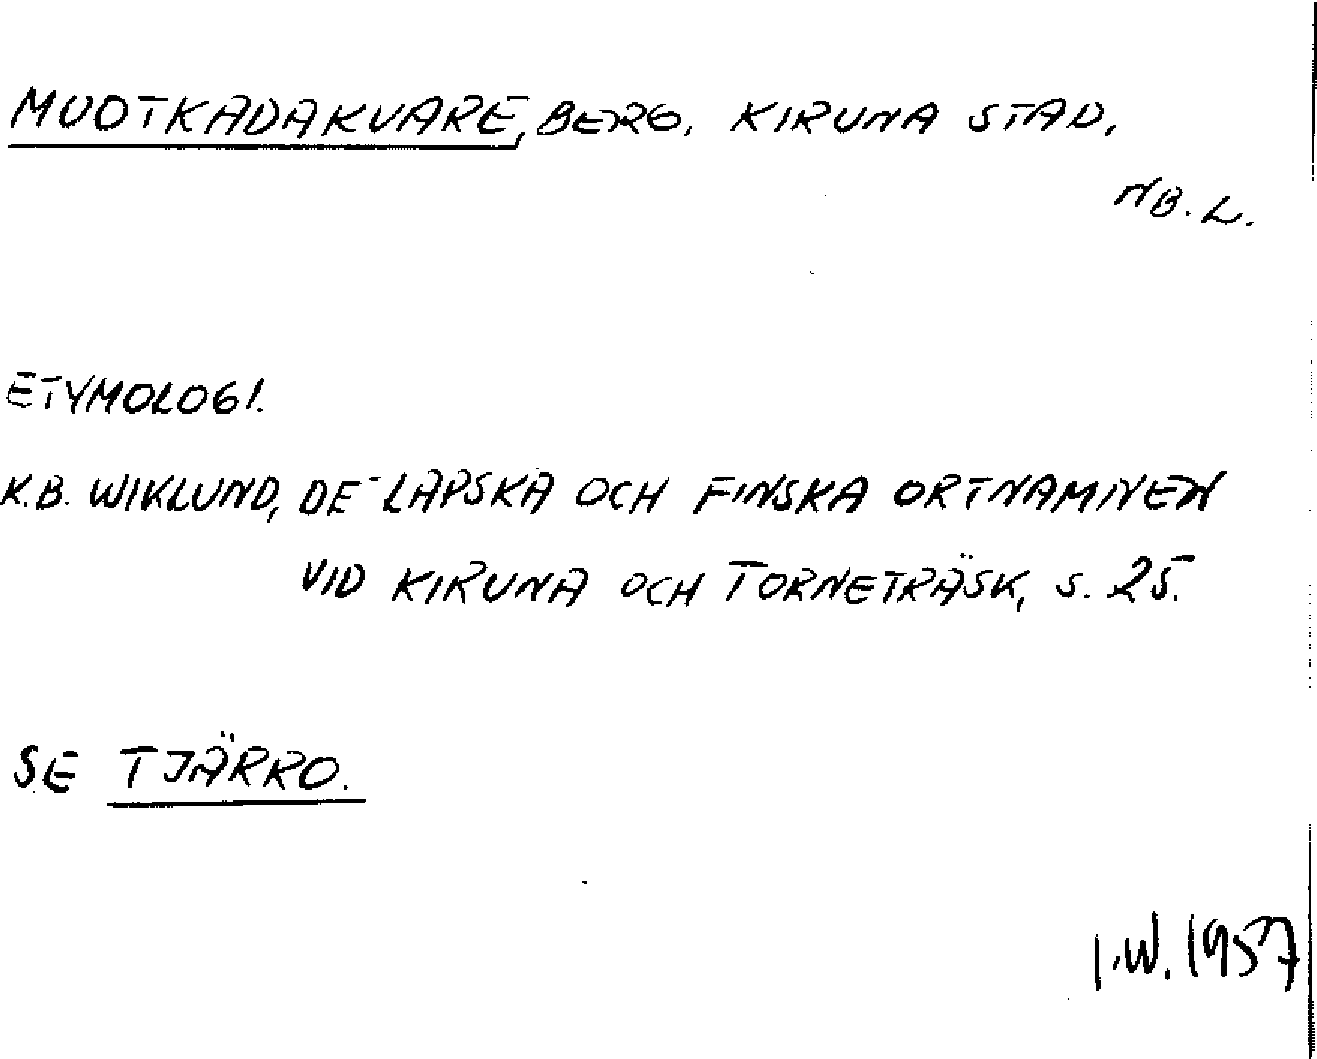 MUOTKADAKVARE, BERG, KIRUNA STAD,
NB. L.
ETYMOLOGI.
K.B. WIKLUND, DE LAPSKA OCH FINSKA ORTNAMNEN
VID KIRUNA OCH TORNETRÄSK, S. 25.
SE TJÄRRO.
I.W. 1957